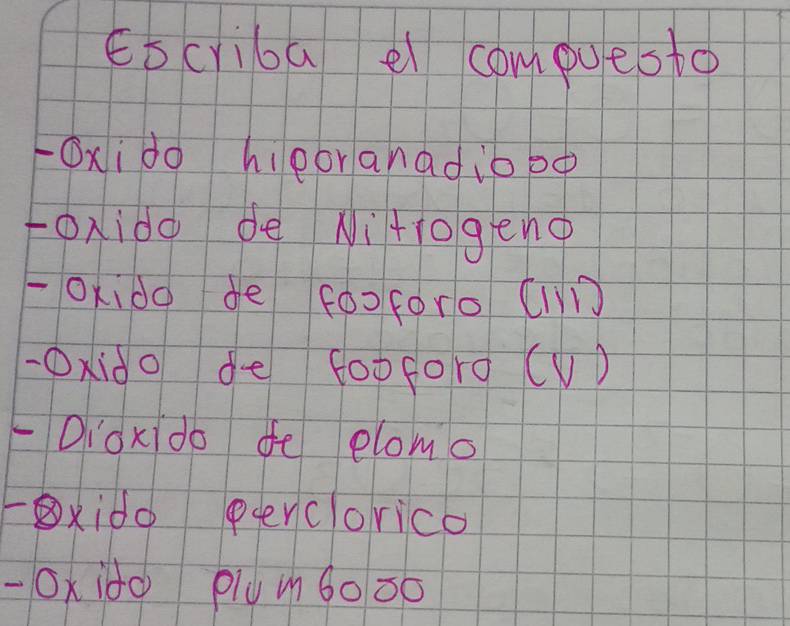 Escriba el compuesto
-Oxido hiporanadioso
-Oxido de Nitrogeno
-Oxido de fosforo (III)
-Oxido de fosforo (V)
-Dioxido de plomo
-Oxido perclorico
-Oxido plumboso